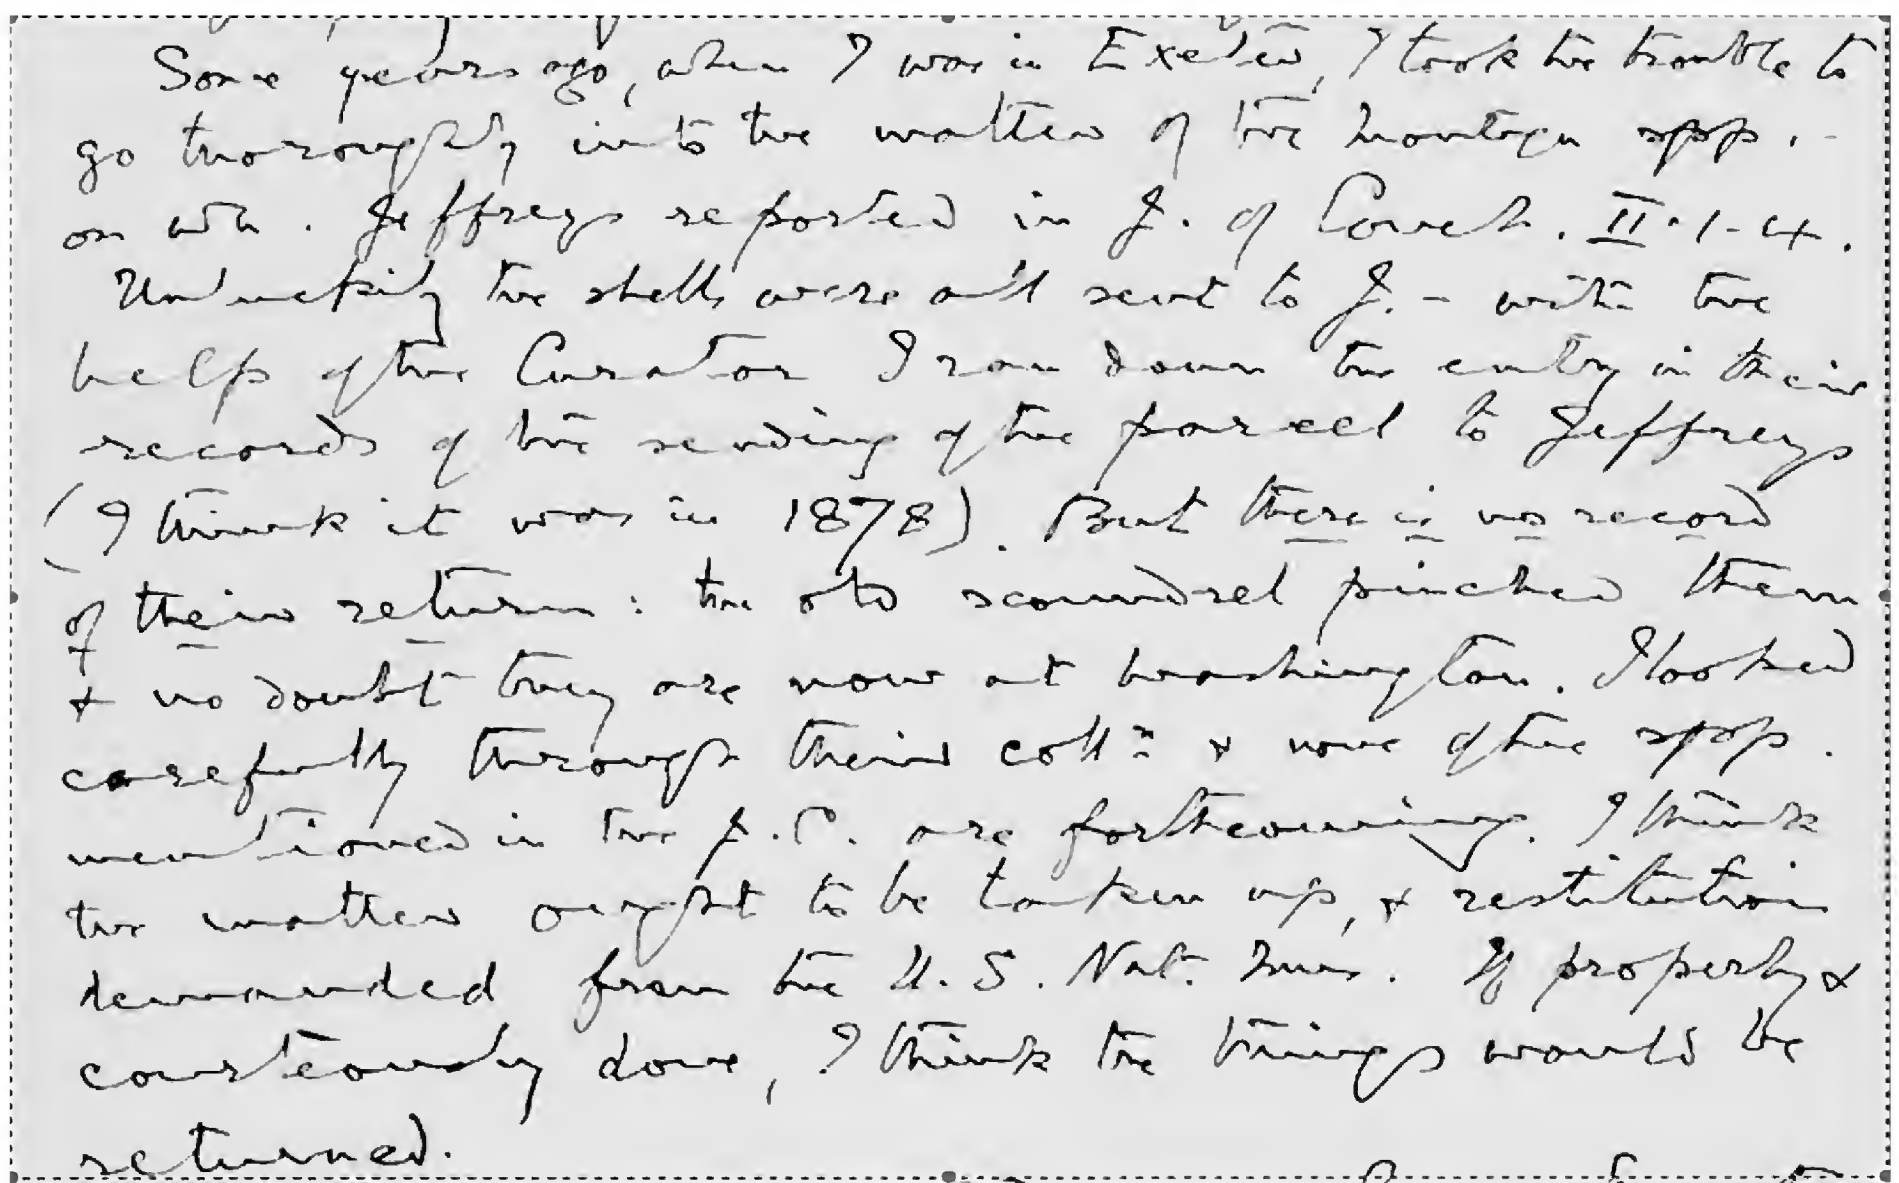 Some years ago, when I was in Exeter, I took the trouble to
go thoroughly into the matter of the Montagu spp. -
on wh. Jeffreys reported in J. of Conch. II.1-4.
Unluckily the shells were all sent to J. - with the
help of the Curator I ran down the entry in their
records of the sending of the parcel to Jeffreys
(I think it was in 1878). But there is no record
of their return: the old scoundrel pinched them
& no doubt they are now at Washington. I looked
carefully through their colln & none of the spp.
mentioned in the J.C. are forthcoming. I think
the matter ought to be taken up, & restitution
demanded from the U.S. Nat. Mus. If properly &
courteously done, I think the things would be
returned.